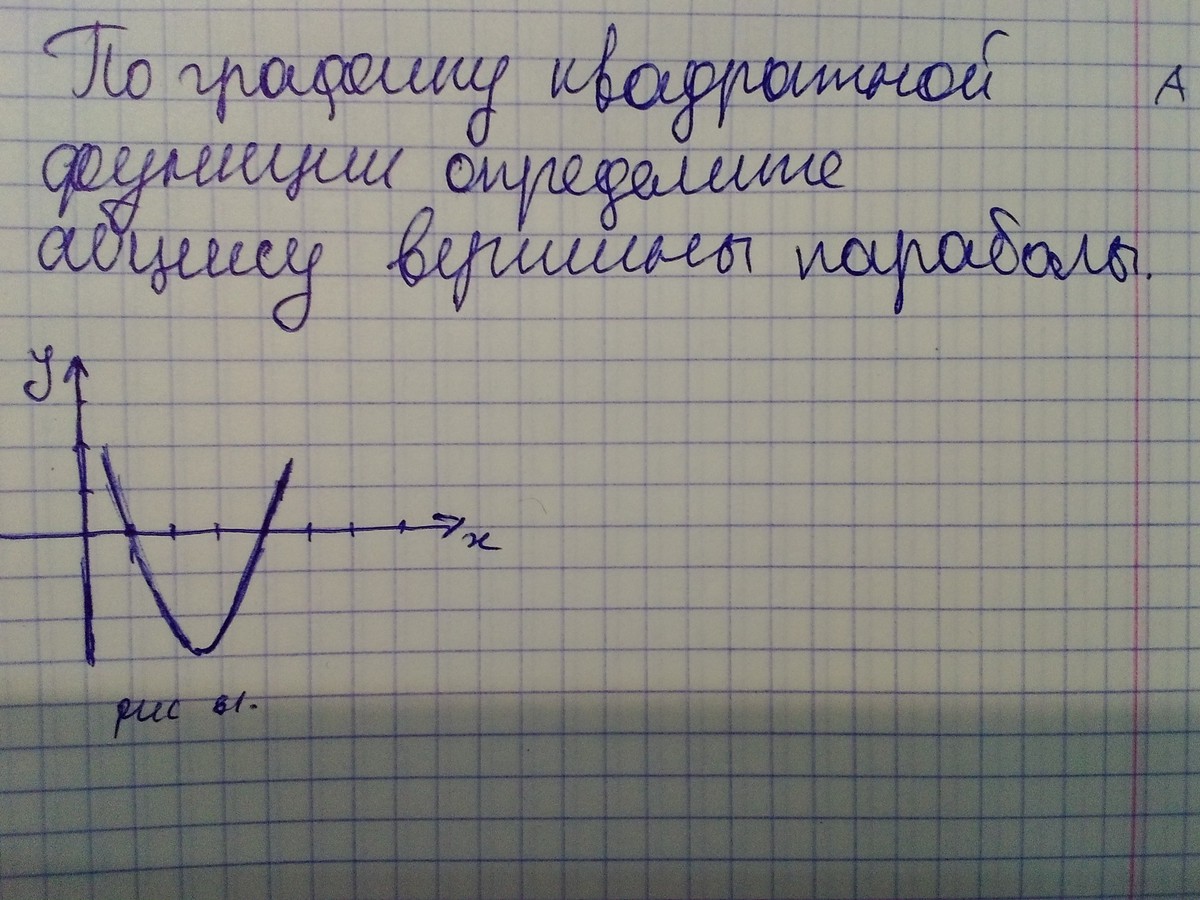 По графику квадратной А
функции определите
абциссу вершины параболы.
y
x
рис 61.